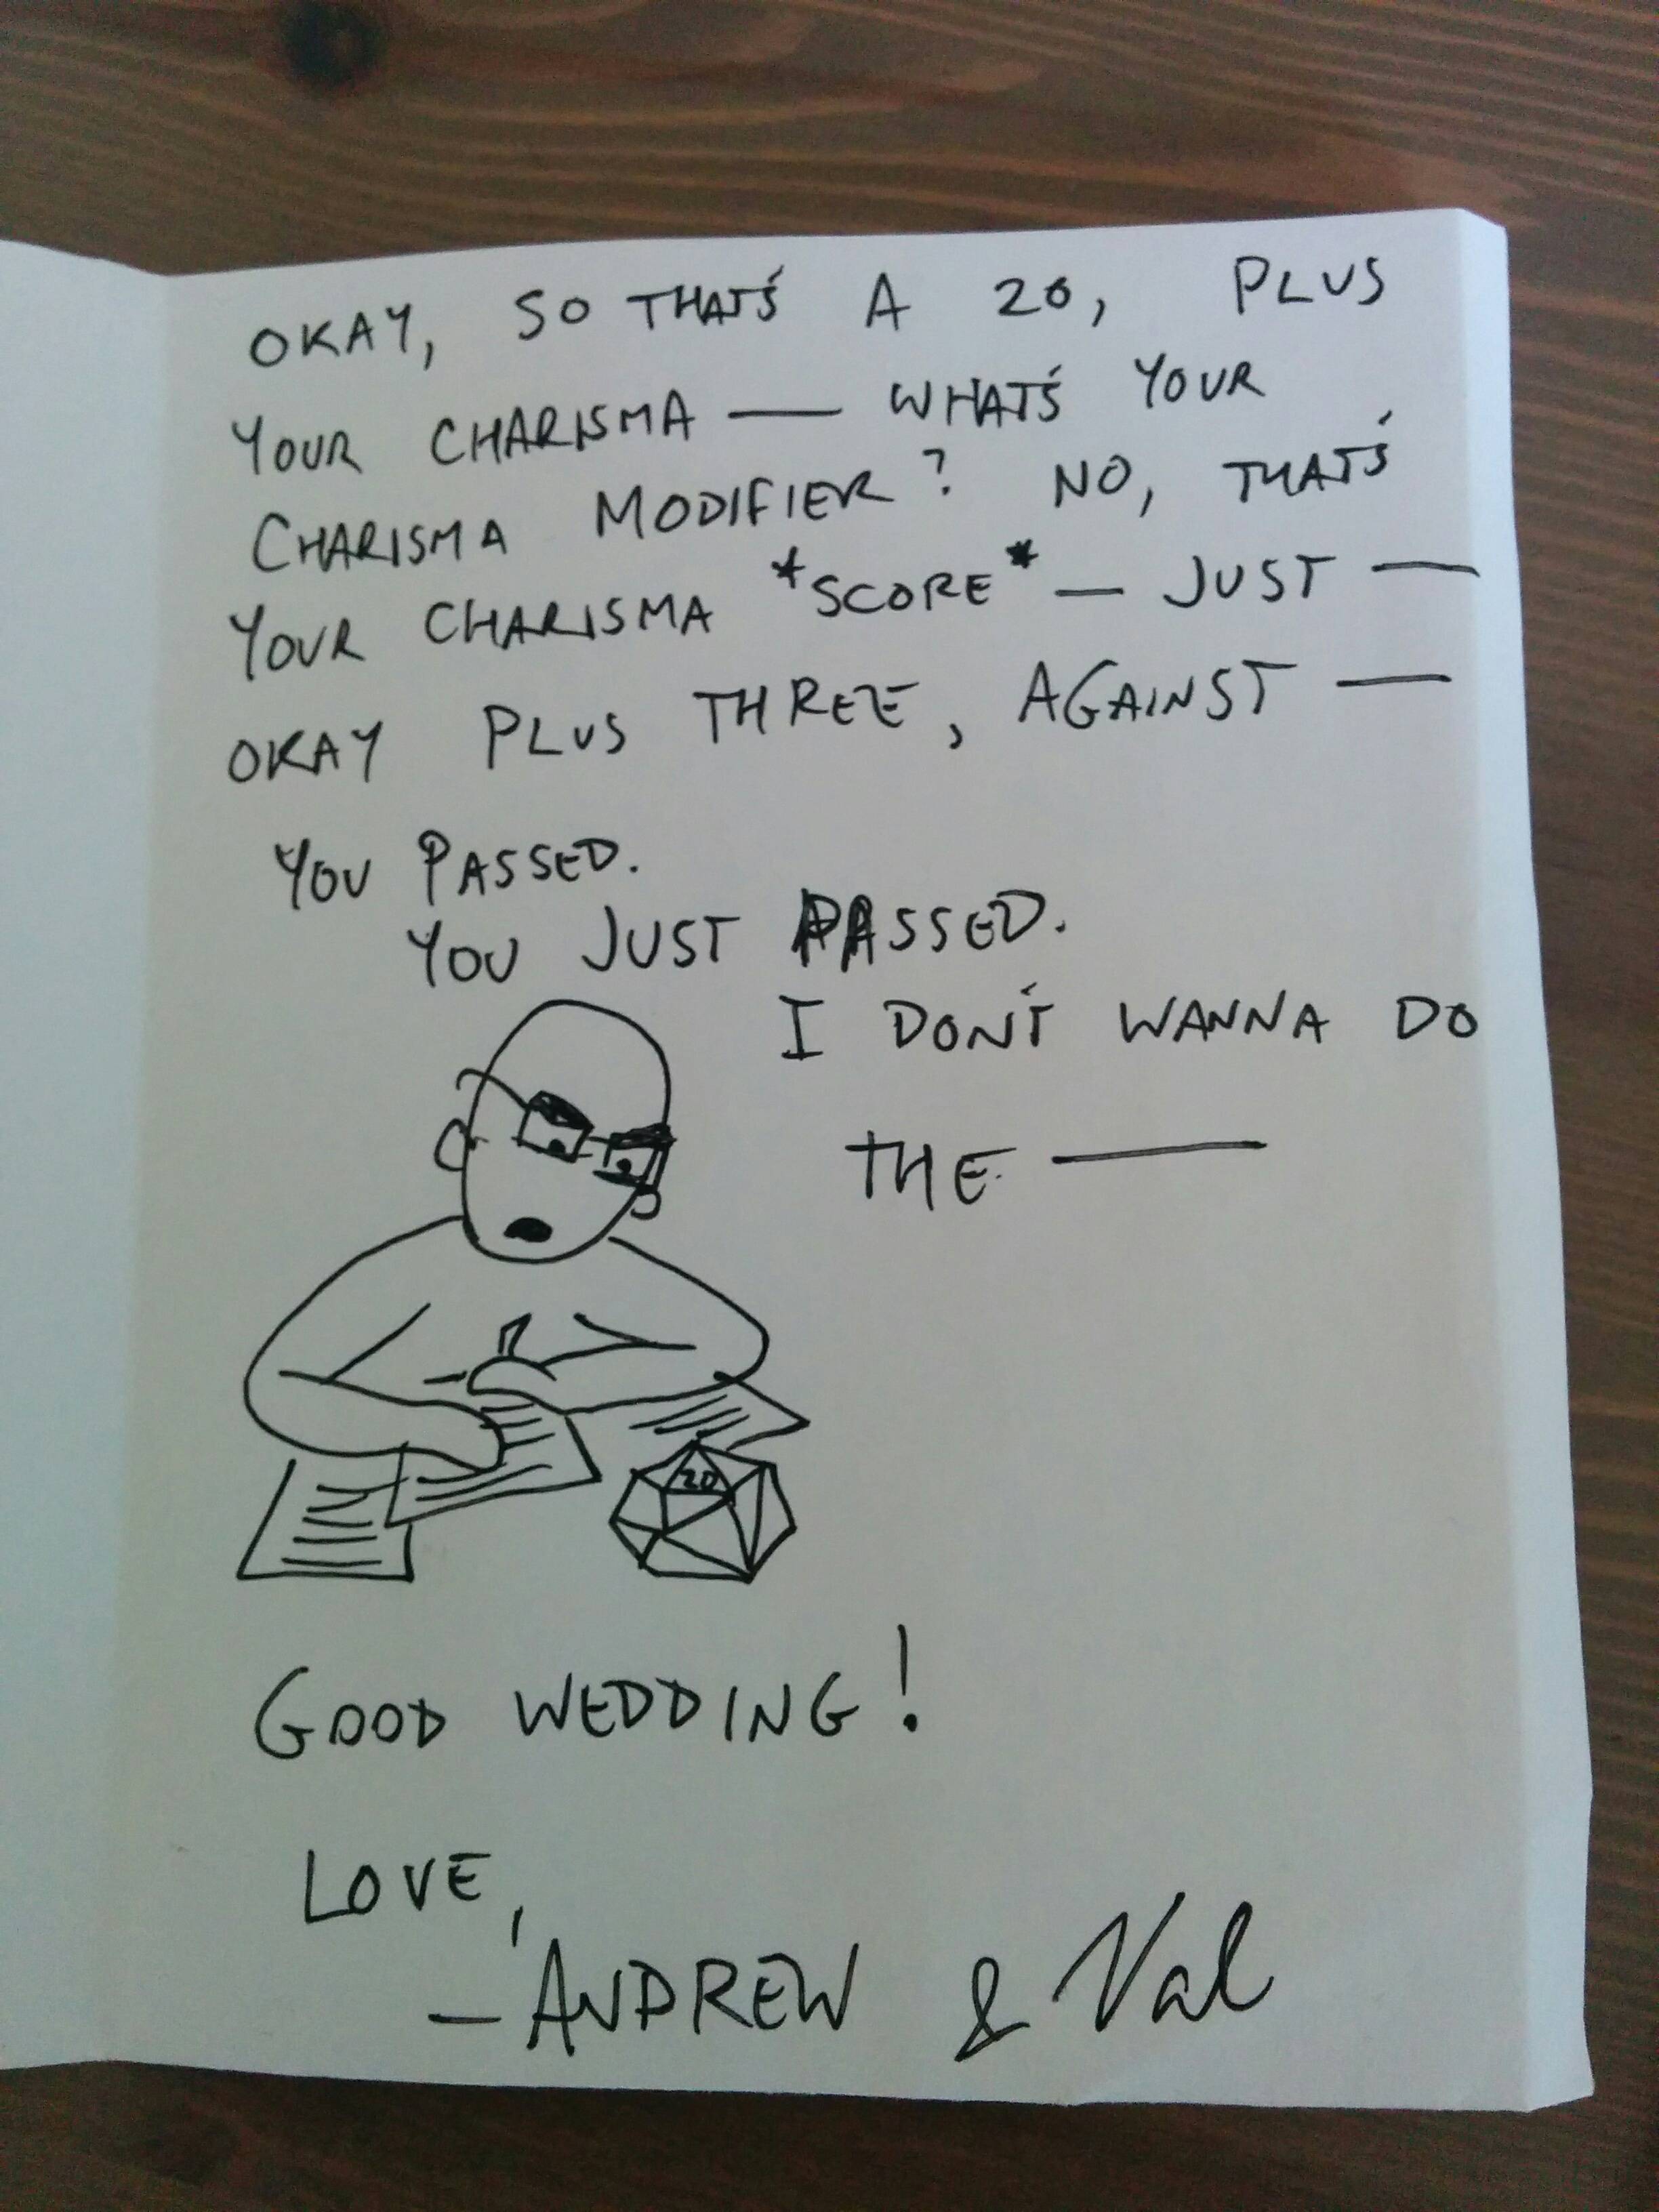 OKAY, SO THAT'S A 20, PLUS
YOUR CHARISMA — WHAT'S YOUR
CHARISMA MODIFIER? NO, THAT'S
YOUR CHARISMA *SCORE* — JUST —
OKAY PLUS THREE, AGAINST —
YOU PASSED.
YOU JUST PASSED.
I DON'T WANNA DO
THE —
20
GOOD WEDDING!
LOVE,
— ANDREW & Val